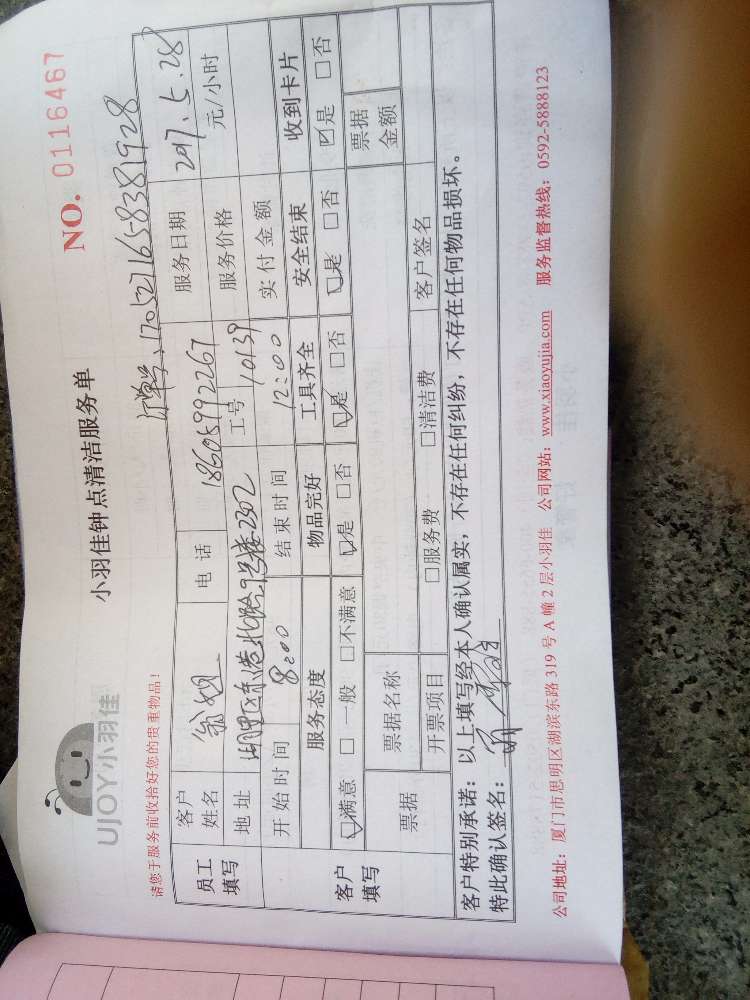 UJOY小羽佳
小羽佳钟点清洁服务单
NO. 0116467
请您于服务前收拾好您的贵重物品！
1705271658381928
员工填写 客户姓名 翁姐 电话 18605992267 服务日期 2017.5.28
地址 湖里区东港北路 2302 工号 10139 服务价格 元/小时
开始时间 8:00 结束时间 12:00 实付金额
客户填写 服务态度 物品完好 工具齐全 安全结束 收到卡片
☑满意 □一般 □不满意 ☑是 □否 ☑是 □否 ☑是 □否 ☑是 □否
票据 票据名称 票据金额
开票项目 □服务费 □清洁费 客户签名
客户特别承诺：以上填写经本人确认属实，不存在任何纠纷，不存在任何物品损坏。
特此确认签名：
公司地址：厦门市思明区湖滨东路 319 号 A 幢 2 层小羽佳 公司网站：www.xiaoyujia.com 服务监督热线：0592-5888123